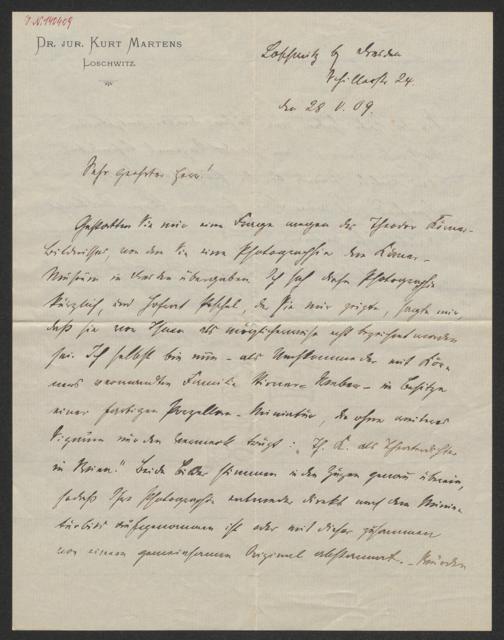 J.N. 142409
DR. JUR. KURT MARTENS
LOSCHWITZ.
Loschwitz b/ Dresden
Schillerstr 24.
den 28 V. 09.
Sehr geehrter Herr!
Gestatten Sie mir eine Frage wegen des Theodor Körner-
Bildnisses, von dem Sie eine Photographie dem Körner-
Museum in Dresden übergaben. Ich sah diese Photographie
kürzlich, und Hofrat Peschel, der sie mir zeigte, sagte mir,
daß sie von Ihnen als möglicherweise echt bezeichnet worden
sei. Ich selbst bin nun – als Nachkomme der mit Kör-
ners verwandten Familie – im Besitze
einer farbigen Porzellan-Miniatur, die ohne weiteres
nur den Vermerk trägt: „Th. K. als Theaterdichter
in Wien." Beide Bilder stimmen in den Zügen genau überein,
sodaß Ihre Photographie entweder direkt nach dem Minia-
türbild aufgenommen ist oder mit dieser zusammen
von einem gemeinsamen Original abstammt. – Würden